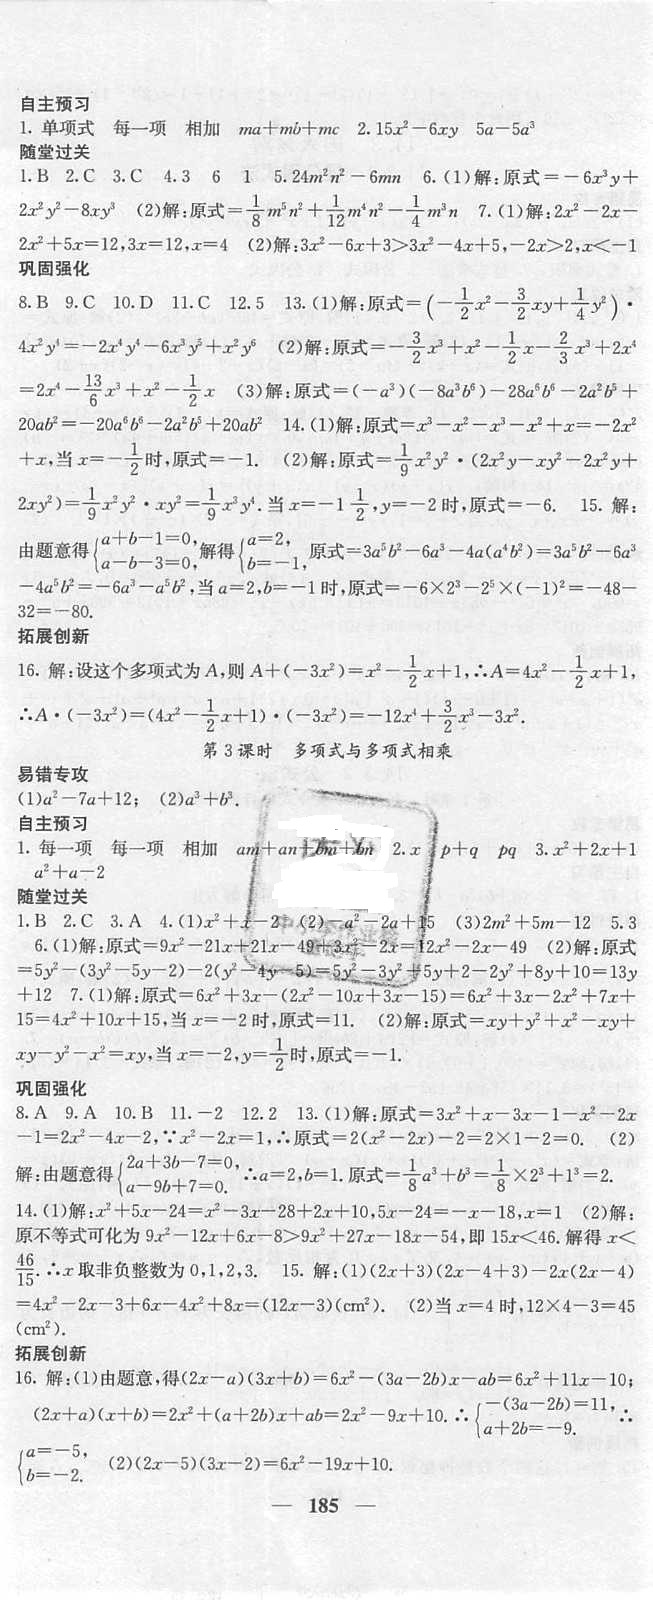 自主预习
1. 单项式 每一项 相加 ma+mb+mc 2.15x²-6xy 5a-5a³
随堂过关
1.B 2.C 3.C 4.3 6 1 5.24m²n²-6mn 6.(1)解:原式=-6x³y+
2x²y²-8xy³ (2)解:原式=1/8m⁵n²+1/12m⁴n²-1/4m³n 7.(1)解:2x²-2x-
2x²+5x=12,3x=12,x=4 (2)解:3x²-6x+3>3x²-4x+5,-2x>2,x<-1
巩固强化
8.B 9.C 10.D 11.C 12.5 13.(1)解:原式=(-1/2x²-3/2xy+1/4y²)·
4x²y⁴=-2x⁴y⁴-6x³y⁵+x²y⁶ (2)解:原式=-3/2x³+x²-1/2x-2/3x³+2x⁴
=2x⁴-13/6x³+x²-1/2x (3)解:原式=(-a³)(-8a³b⁶)-28a⁶b⁶-2a²b⁵+
20ab²=-20a⁶b⁶-2a²b⁵+20ab² 14.(1)解:原式=x³-x²-x³-x²+x=-2x²
+x,当x=-1/2时,原式=-1. (2)解:原式=1/9x²y²·(2x²y-xy²-2x²y+
2xy²)=1/9x²y²·xy²=1/9x³y⁴.当x=-1 1/2,y=-2时,原式=-6. 15. 解:
由题意得{a+b-1=0, a-b-3=0,解得{a=2, b=-1,原式=3a⁵b²-6a³-4a(a⁴b²)=3a⁵b²-6a³
-4a⁵b²=-6a³-a⁵b²,当a=2,b=-1时,原式=-6×2³-2⁵×(-1)²=-48-
32=-80.
拓展创新
16. 解:设这个多项式为A,则A+(-3x²)=x²-1/2x+1,∴A=4x²-1/2x+1,
∴A·(-3x²)=(4x²-1/2x+1)·(-3x²)=-12x⁴+3/2x³-3x².
第3课时 多项式与多项式相乘
易错专攻
(1)a²-7a+12; (2)a³+b³.
自主预习
1. 每一项 每一项 相加 am+an+bm+bn 2.x p+q pq 3.x²+2x+1
a²+a-2
随堂过关
1.B 2.C 3.A 4.(1)x²+x-2 (2)-a²-2a+15 (3)2m²+5m-12 5.3
6.(1)解:原式=9x²-21x+21x-49+3x²-2x=12x²-2x-49 (2)解:原式
=5y²-(3y²-5y-2)-2(y²-4y-5)=5y²-3y²+5y+2-2y²+8y+10=13y
+12 7.(1)解:原式=6x²+3x-(2x²-10x+3x-15)=6x²+3x-2x²+7x+
15=4x²+10x+15,当x=-2时,原式=11. (2)解:原式=xy+y²+x²-xy+
xy-y²-x²=xy,当x=-2,y=1/2时,原式=-1.
巩固强化
8.A 9.A 10.B 11.-2 12.2 13.(1)解:原式=3x²+x-3x-1-x²-2x
-1=2x²-4x-2,∵x²-2x=1,∴原式=2(x²-2x)-2=2×1-2=0. (2)
解:由题意得{2a+3b-7=0, a-9b+7=0. ∴a=2,b=1.原式=1/8a³+b³=1/8×2³+1³=2.
14.(1)解:x²+5x-24=x²-3x-28+2x+10,5x-24=-x-18,x=1 (2)解:
原不等式可化为9x²-12x+6x-8>9x²+27x-18x-54,即15x<46.解得x<
46/15.∴x取非负整数为0,1,2,3. 15. 解:(1)(2x+3)(2x-4+3)-2x(2x-4)
=4x²-2x-3+6x-4x²+8x=(12x-3)(cm²). (2)当x=4时,12×4-3=45
(cm²).
拓展创新
16. 解:(1)由题意,得(2x-a)(3x+b)=6x²-(3a-2b)x-ab=6x²+11x-10;
(2x+a)(x+b)=2x²+(a+2b)x+ab=2x²-9x+10.∴{-(3a-2b)=11, a+2b=-9. ∴
{a=-5, b=-2. (2)(2x-5)(3x-2)=6x²-19x+10.
— 185 —